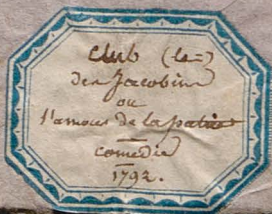 Club (le=)
des Jacobins
ou
l'amour de la patrie
comedie
1792.